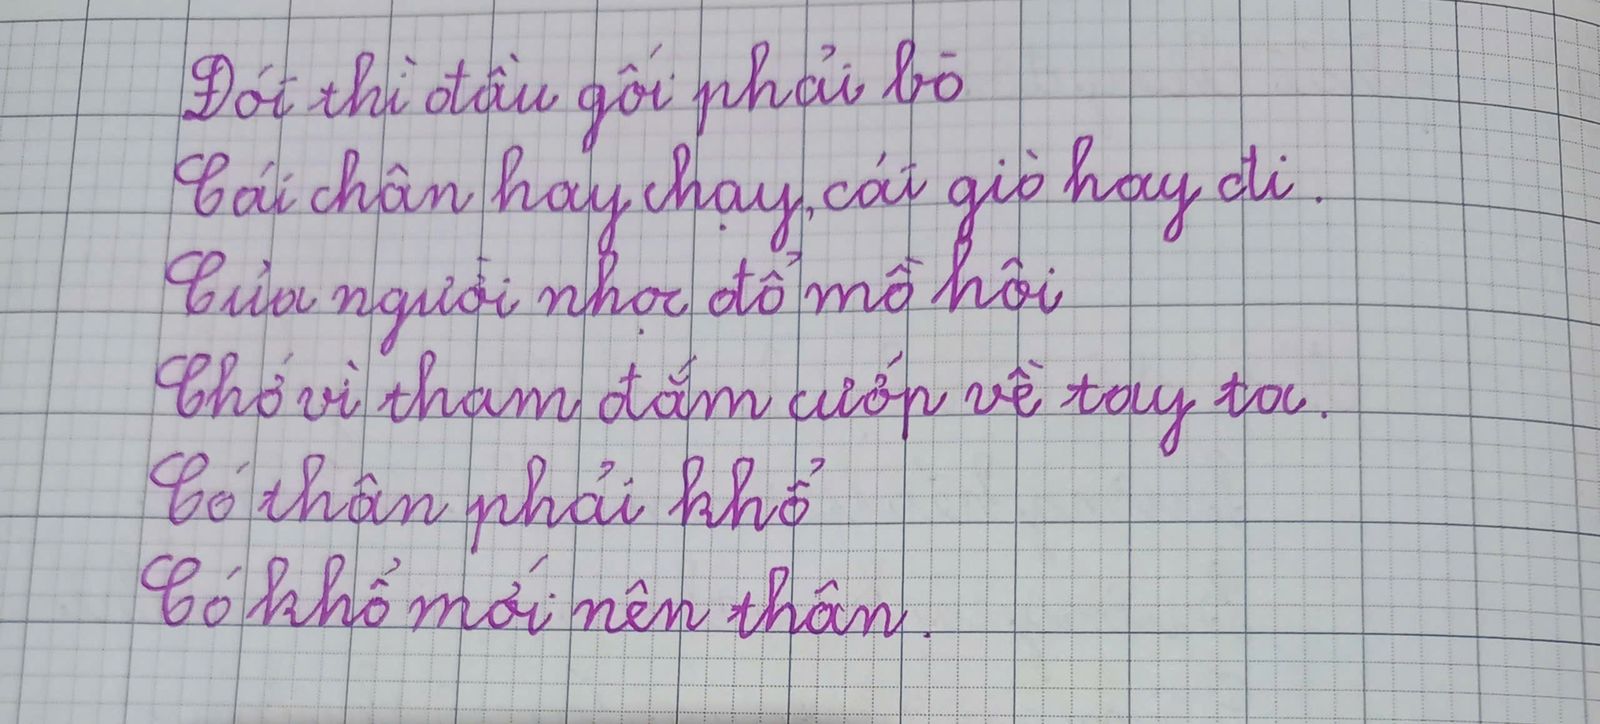 Đói thì đầu gối phải bò
Cái chân hay chạy, cái giò hay đi.
Của người nhọc đổ mồ hôi
Chớ vì tham đắm cướp về tay ta.
Có thân phải khổ
Có khổ mới nên thân.